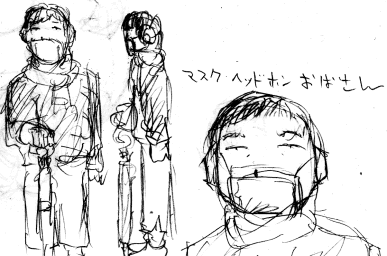 マスク・ヘッドホン おばさん